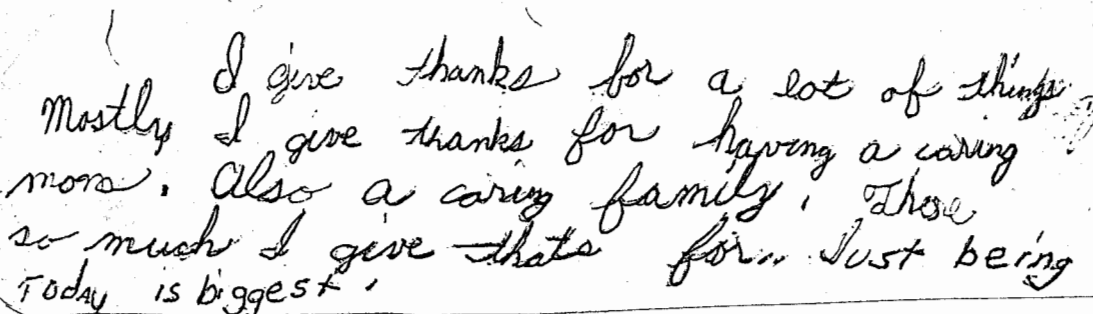 I give thanks for a lot of things
Mostly I give thanks for having a caring
mom. Also a caring family. These
so much I give thats for.. Just being
Today is biggest.